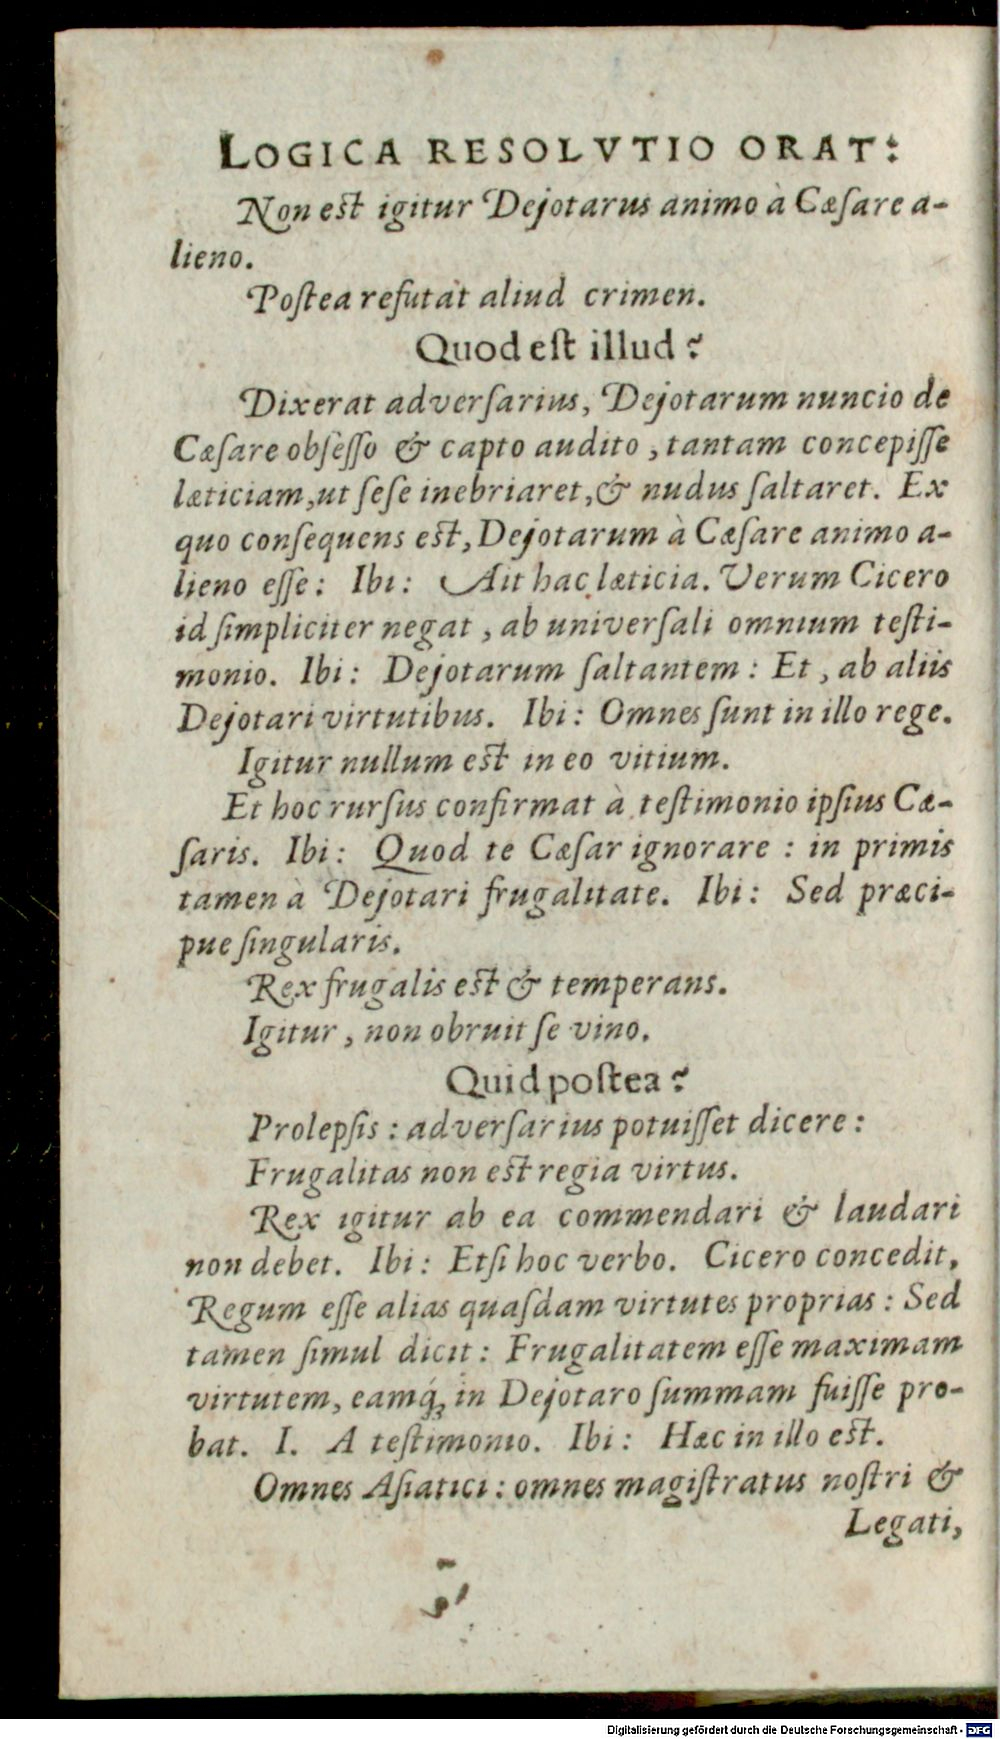 LOGICA RESOLVTIO ORAT:
Non est igitur Dejotarus animo à Cæſare a-
lieno.
Poſtea refutat aliud crimen.
Quod eſt illud?
Dixerat adverſarius, Dejotarum nuncio de
Cæſare obſeſſo & capto audito, tantam concepiſſe
læticiam, ut ſeſe inebriaret, & nudus ſaltaret. Ex
quo conſequens est, Dejotarum à Cæſare animo a-
lieno eſſe: Ibi: Ait hac læticia. Verum Cicero
id ſimpliciter negat, ab univerſali omnium teſti-
monio. Ibi: Dejotarum ſaltantem: Et, ab aliis
Dejotari virtutibus. Ibi: Omnes ſunt in illo rege.
Igitur nullum est in eo vitium.
Et hoc rurſus confirmat à teſtimonio ipſius Cæ-
ſaris. Ibi: Quod te Cæſar ignorare: in primis
tamen à Dejotari frugalitate. Ibi: Sed præci-
pue ſingularis.
Rex frugalis est & temperans.
Igitur, non obruit ſe vino.
Quid poſtea?
Prolepſis: adverſarius potuiſſet dicere:
Frugalitas non est regia virtus.
Rex igitur ab ea commendari & laudari
non debet. Ibi: Etſi hoc verbo. Cicero concedit,
Regum eſſe alias quaſdam virtutes proprias: Sed
tamen ſimul dicit: Frugalitatem eſſe maximam
virtutem, eamq́ꝫ in Dejotaro ſummam fuiſſe pro-
bat. I. A teſtimonio. Ibi: Hæc in illo est.
Omnes Aſiatici: omnes magiſtratus noſtri &
Legati,
Digitalisierung gefördert durch die Deutsche Forschungsgemeinschaft - DFG